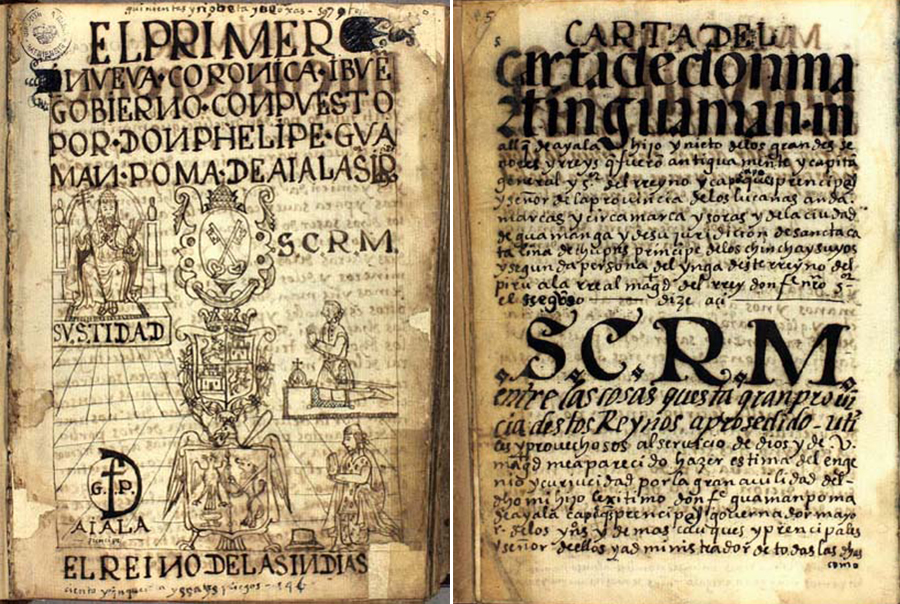 quinientes y
EL PRIMER
NVEVA·CORONICA·IBVE
GOBIERNO·CONPVESTO
POR·DONPHELIPE·GVA
MAN·POMA·DEAIALA SR
S.C.R.M.
SVSSTIDAD
G. P.
AIALA
principe
EL REINO DELASINDIAS
5
CARTA DEL
Cartadedonma
rtinguaman·m
allq̃ de ayala hijo y nieto delos grandes se
nores y rreys q̃ fueron antiguamente y capitan
general y sr del rreyno y capac principe
y señor de la prouincia delos lucanas anda
marcas y circamarca y soras y dela ciudad
de guamanga y de su juridiction de sancta ca
talina de chupas principe delos chinchaysuyos
y segunda persona del ynga deste rreyno del
piru ala rreal magd del rrey don fe nro sor
el segundo dize aci
S.C.R.M
entre las cosas questa gran proui
cia destos Reynos a prosedido uti
les y prouechosos al seruicio de dios y de V.
magd me a parecido hazer estima del enge
nio y curiucidad por la gran auilidad del
dho mi hijo lexitimo don fe guaman poma
de ayala capac prencipe gouernador mayor
de los yns y demas caciques y prencipales
y señor de ellos y administrador de todas las dhas
como